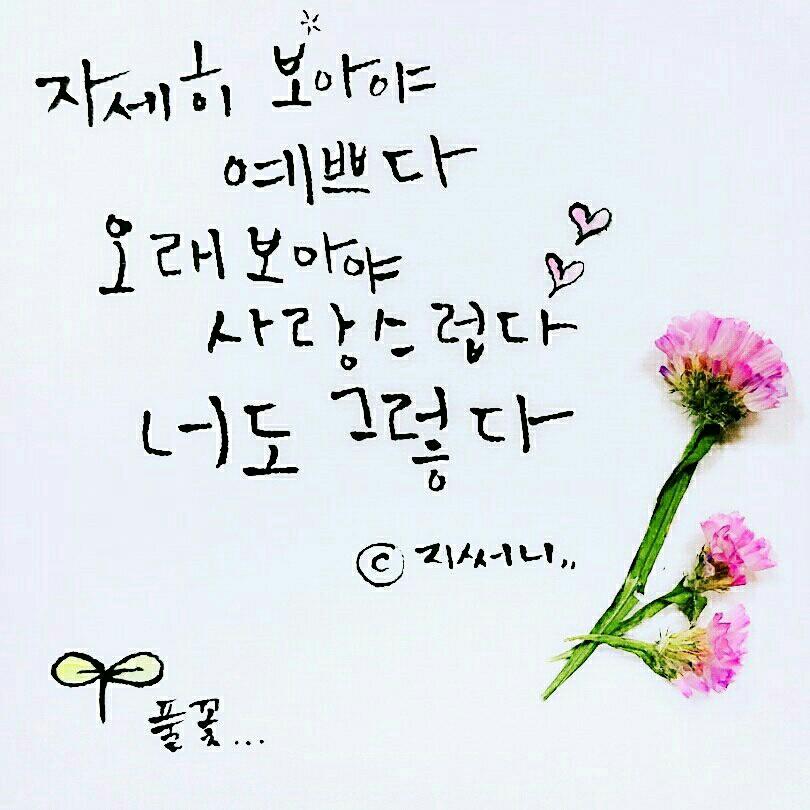 자세히 보아야
예쁘다
오래 보아야
사랑스럽다
너도 그렇다
ⓒ 지써니,,
풀꽃...